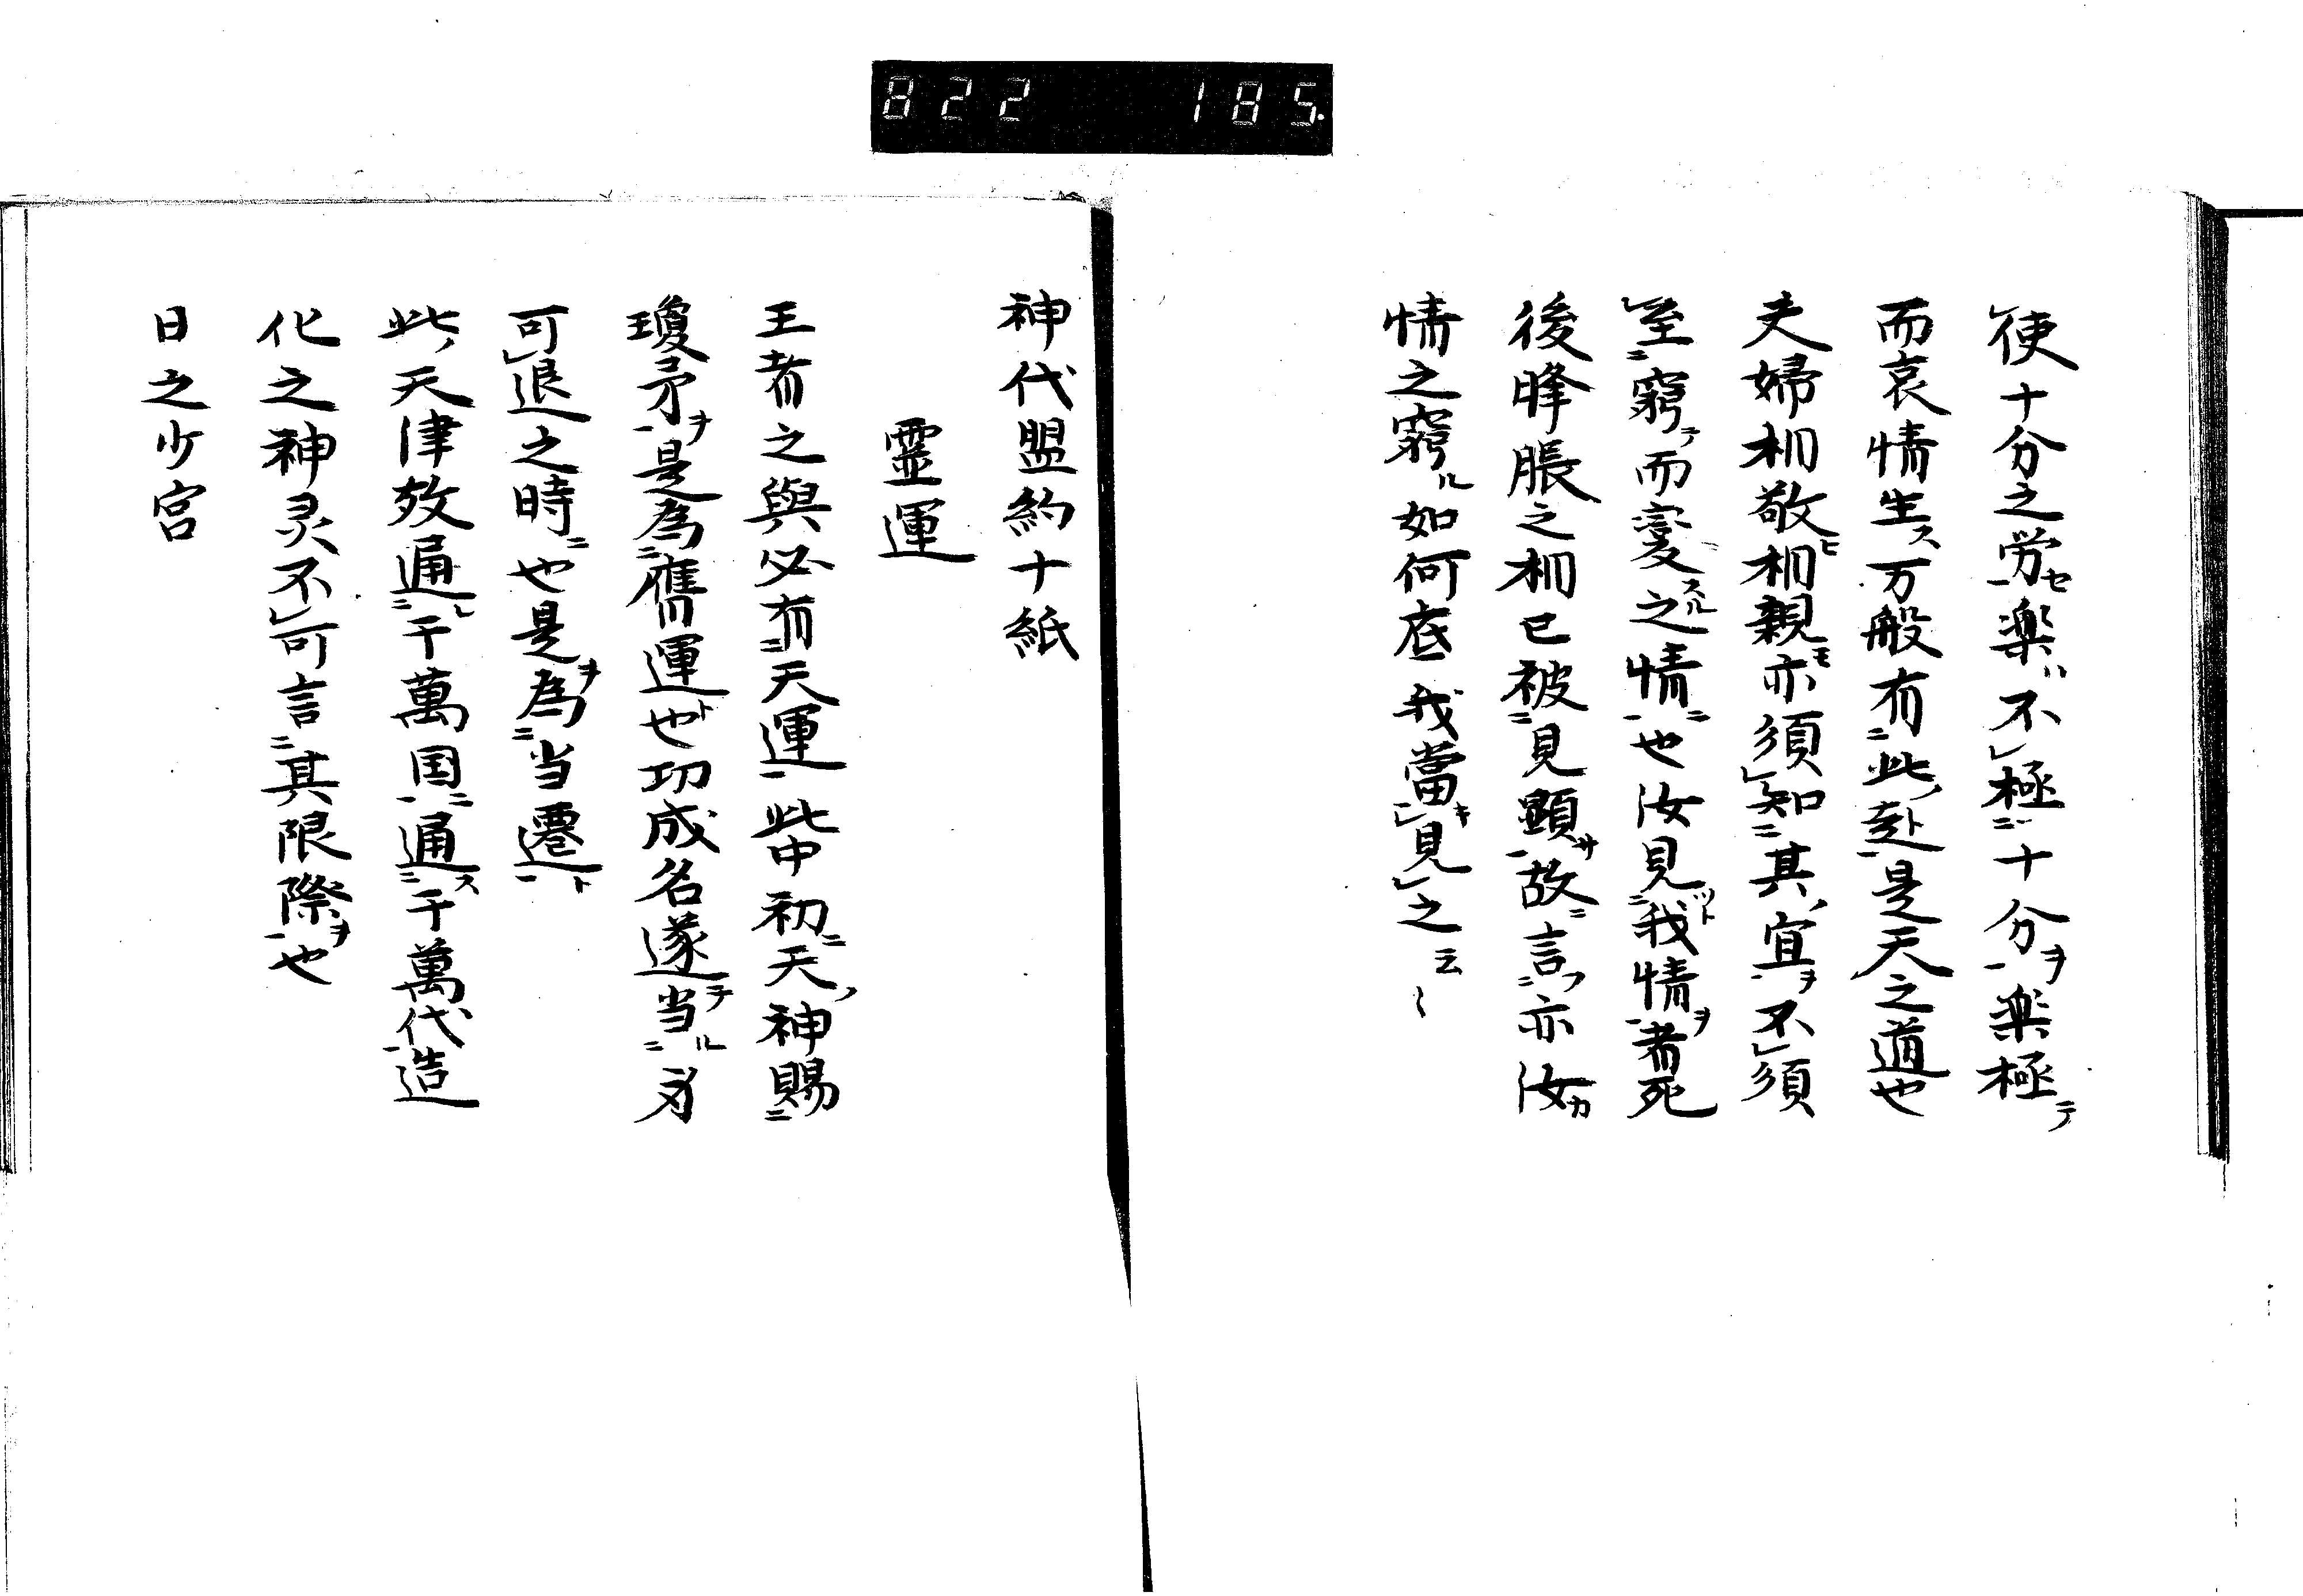 822 185.
使十分之労セ楽ハ不極十分ヲ楽極テ
而哀情生ス万般有此赴ト是天之道也
夫婦相敬ヒ相親モ亦須知其宜ヲ不須
至窮テ而変スル之情ニ也汝見ツト我情ヲ者死
後胮脹之相已被見顕サ故ニ言フ亦汝カ
情之窮ル如何底我當キ見之云〻
神代盟約十紙
霊運
王者之與必有天運此中初ニ天ノ神賜
瓊矛ヲ是為膺運ト也功成名遂テ当ル身
可退之時ニ也是ヲ為当遷ト
此ノ天津效通シ千萬国ニ通ス千萬代造
化之神灵不可言其限際ヲ也
日之少宮